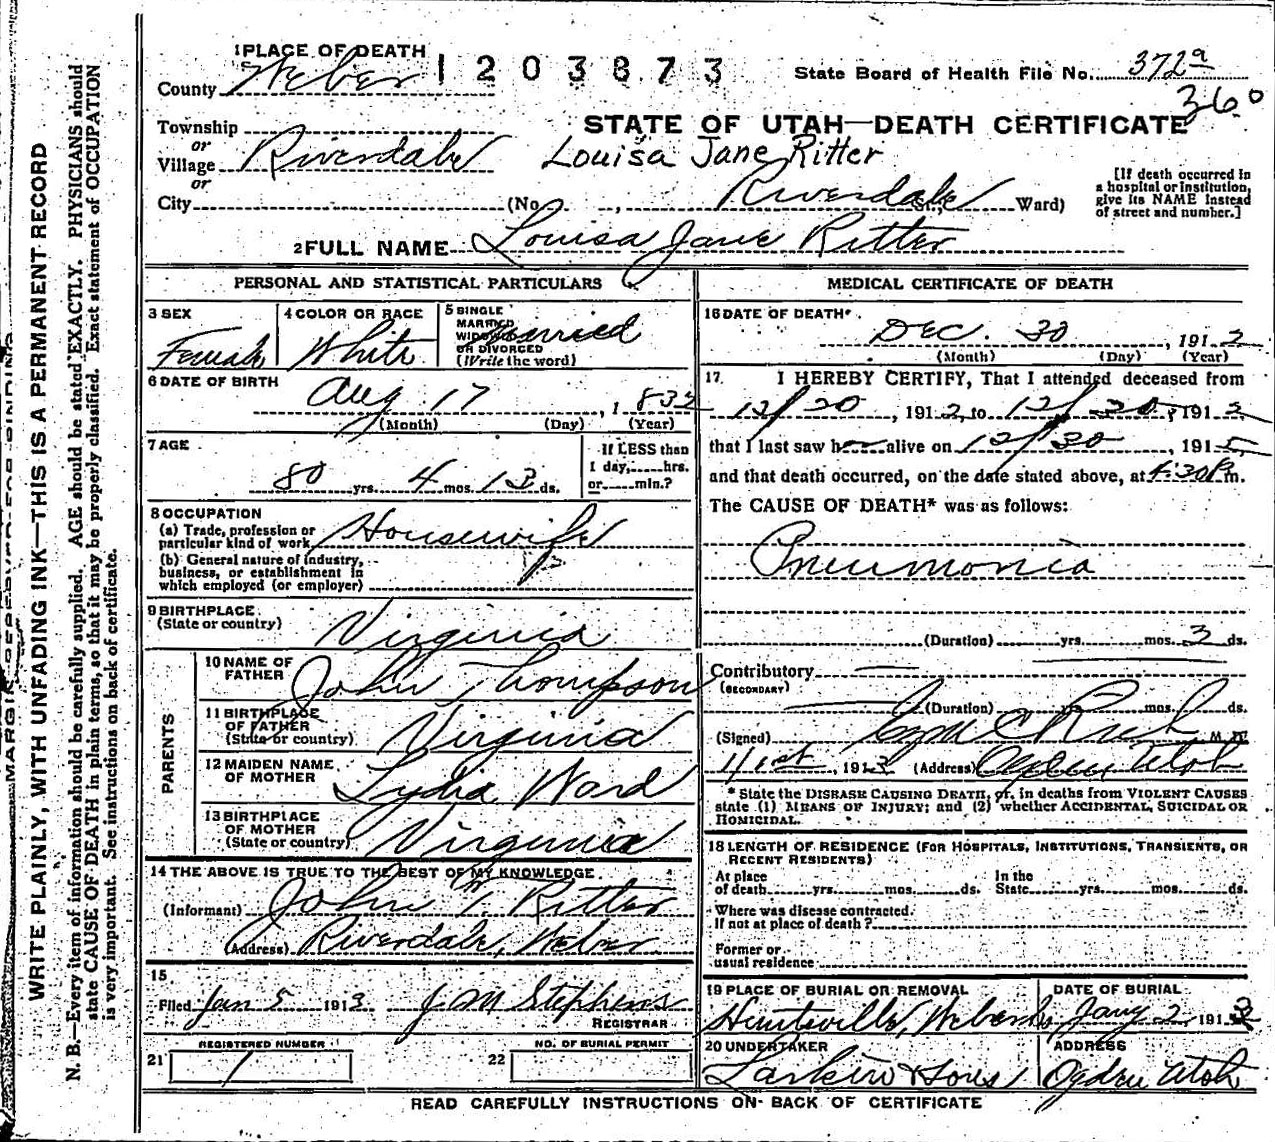 1 PLACE OF DEATH
1203873
State Board of Health File No. 372a
360
County Weber
STATE OF UTAH—DEATH CERTIFICATE
Township
or
Village Riverdale
Louisa Jane Ritter
or
City (No. , Riverdale St., Ward)
[If death occurred in
a hospital or institution,
give its NAME instead
of street and number.]
2 FULL NAME Louisa Jane Ritter
PERSONAL AND STATISTICAL PARTICULARS
3 SEX
Female
4 COLOR OR RACE
White
5 SINGLE
MARRIED
WIDOWED
OR DIVORCED
(Write the word)
Married
6 DATE OF BIRTH
Aug 17, 1832
(Month) (Day) (Year)
7 AGE
80 yrs. 4 mos. 13 ds.
If LESS than
1 day, hrs.
or min.?
8 OCCUPATION
(a) Trade, profession or
particular kind of work Housewife
(b) General nature of industry,
business, or establishment in
which employed (or employer)
9 BIRTHPLACE
(State or country) Virginia
PARENTS
10 NAME OF
FATHER John Thompson
11 BIRTHPLACE
OF FATHER
(State or country) Virginia
12 MAIDEN NAME
OF MOTHER Lydia Ward
13 BIRTHPLACE
OF MOTHER
(State or country) Virginia
14 THE ABOVE IS TRUE TO THE BEST OF MY KNOWLEDGE
(Informant) John T. Ritter
(Address) Riverdale, Weber
15
Filed Jan 5 1913 J M Stephens
REGISTRAR
21
REGISTERED NUMBER
1
22
NO. OF BURIAL PERMIT
MEDICAL CERTIFICATE OF DEATH
16 DATE OF DEATH
Dec. 30, 1912
(Month) (Day) (Year)
17. I HEREBY CERTIFY, That I attended deceased from
12/20, 1912, to 12/30, 1912
that I last saw her alive on 12/30, 1912,
and that death occurred, on the date stated above, at 4:30 P.m.
The CAUSE OF DEATH* was as follows:
Pneumonia
(Duration) yrs. mos. 3 ds.
Contributory
(SECONDARY)
(Duration) yrs. mos. ds.
(Signed) Ezra C Rich M. D.
1/1st, 1913 (Address) Ogden Utah
* State the DISEASE CAUSING DEATH, or, in deaths from VIOLENT CAUSES
state (1) MEANS OF INJURY; and (2) whether ACCIDENTAL, SUICIDAL OR
HOMICIDAL.
18 LENGTH OF RESIDENCE (FOR HOSPITALS, INSTITUTIONS, TRANSIENTS, OR
RECENT RESIDENTS)
At place
of death yrs. mos. ds.
In the
State yrs. mos. ds.
Where was disease contracted.
If not at place of death?
Former or
usual residence
19 PLACE OF BURIAL OR REMOVAL
Huntsville, Weber
DATE OF BURIAL
Jany 2 1913
20 UNDERTAKER
Larkin & Sons
ADDRESS
Ogden Utah
READ CAREFULLY INSTRUCTIONS ON BACK OF CERTIFICATE
MARGIN RESERVED FOR BINDING
WRITE PLAINLY, WITH UNFADING INK—THIS IS A PERMANENT RECORD
N. B.—Every item of information should be carefully supplied. AGE should be stated EXACTLY. PHYSICIANS should
state CAUSE OF DEATH in plain terms, so that it may be properly classified. Exact statement of OCCUPATION
is very important. See instructions on back of certificate.